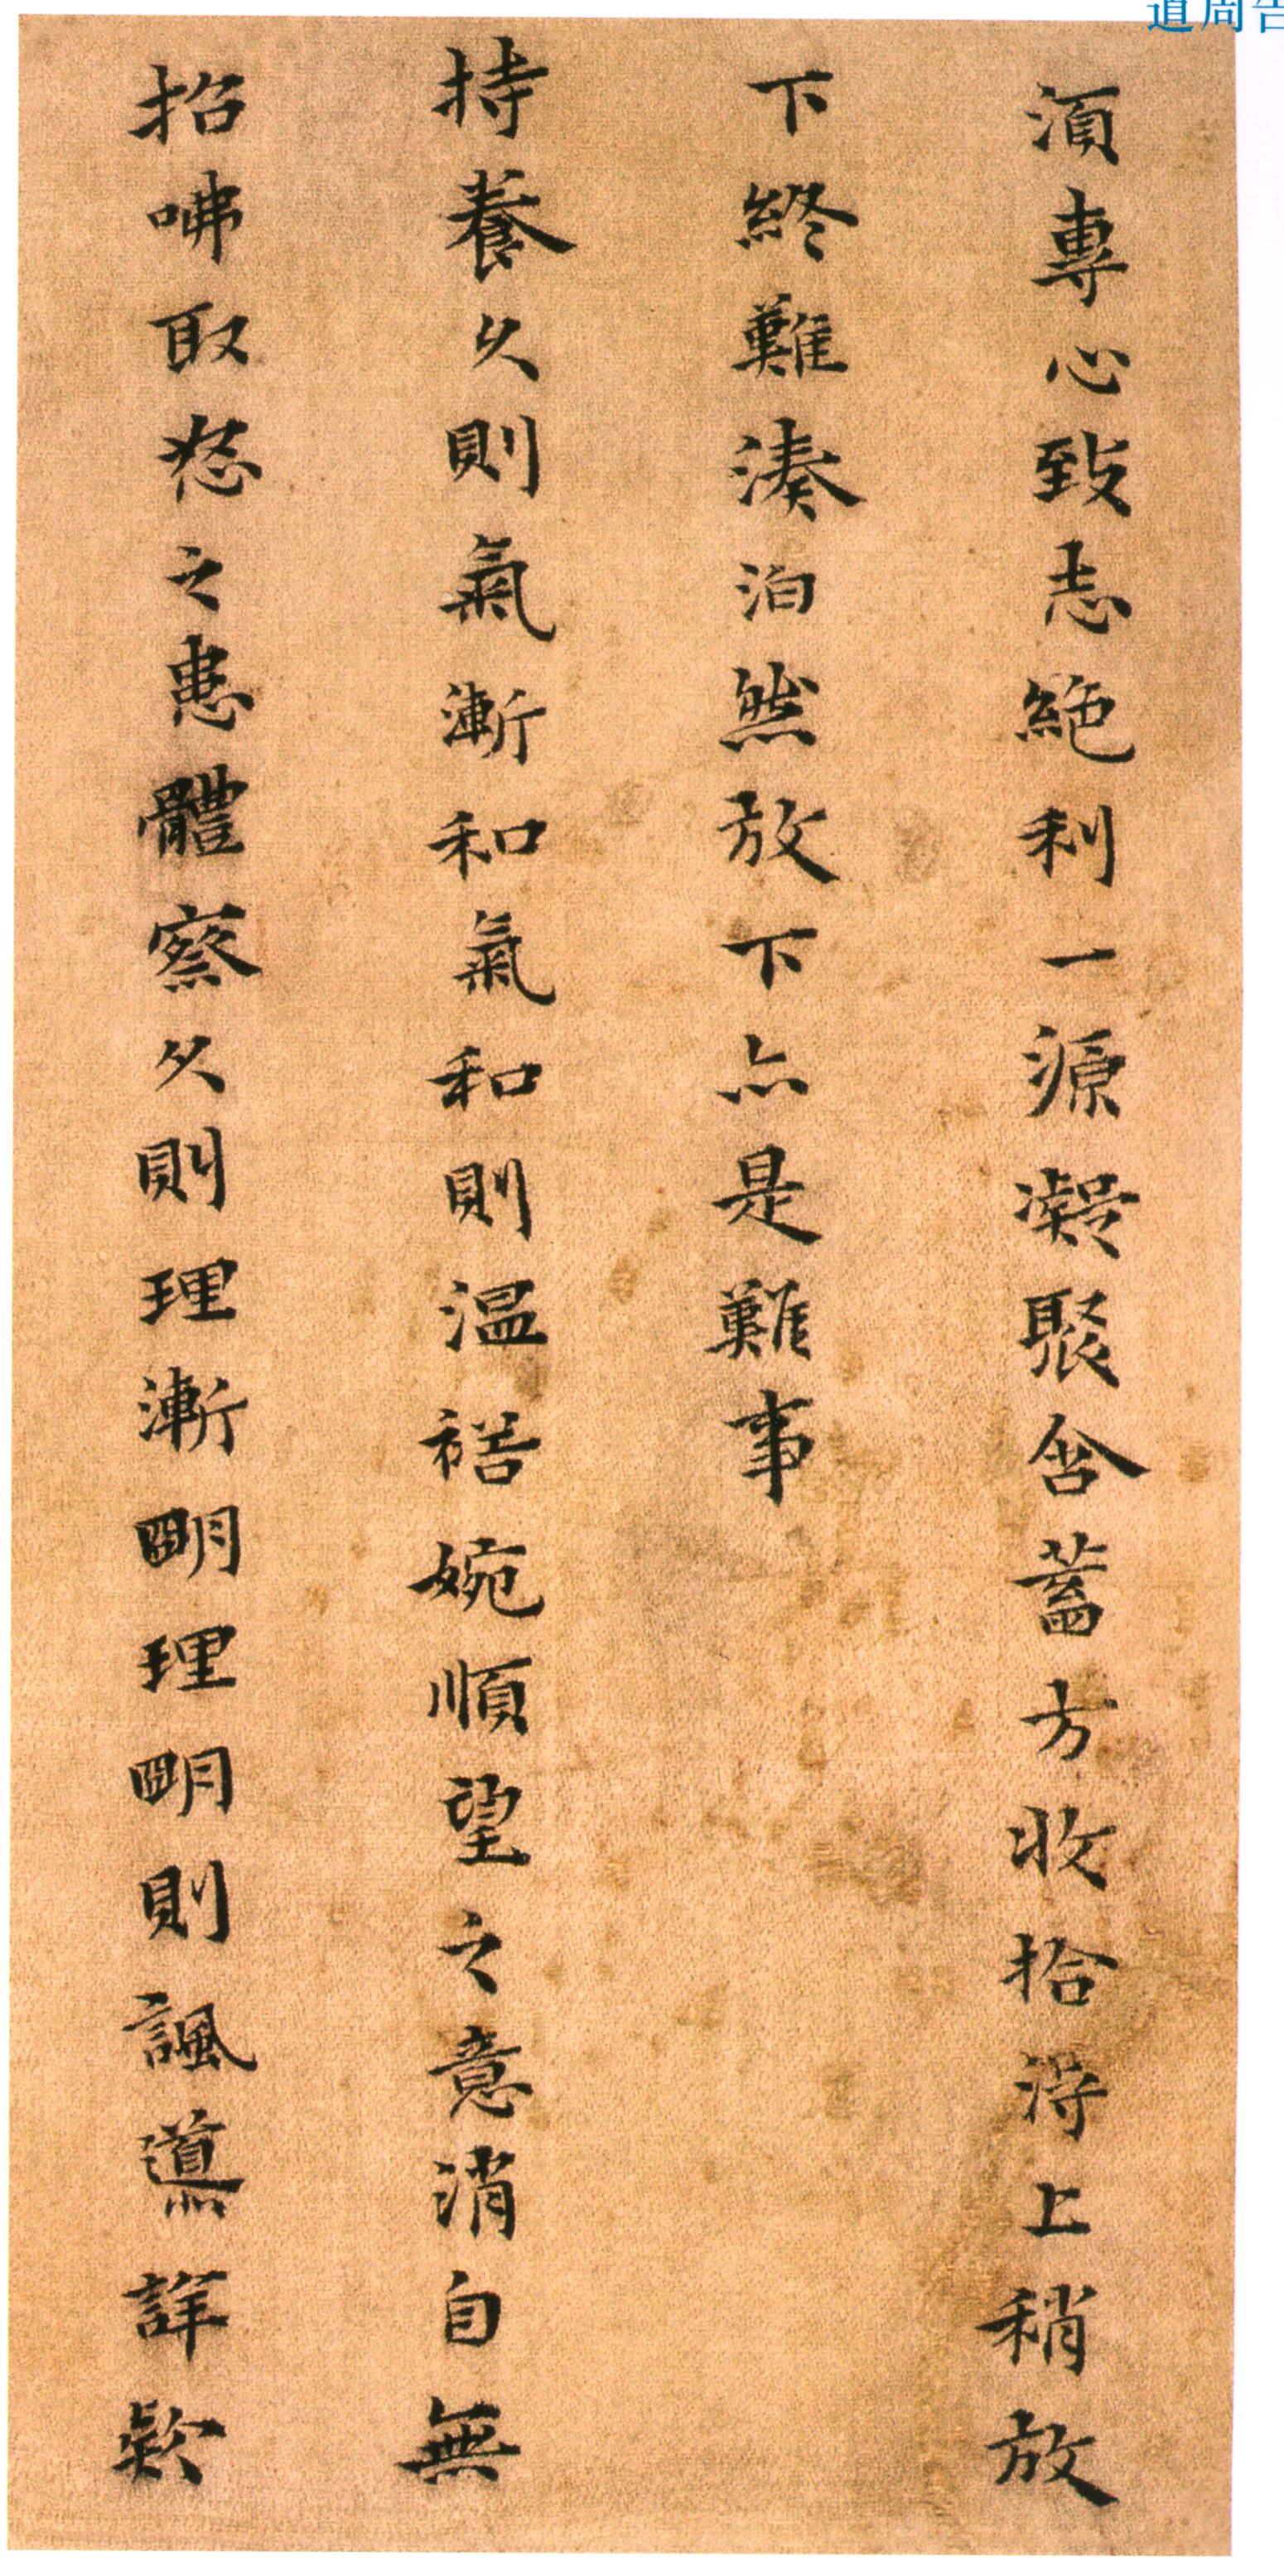 道周告
須專心致志絶利一源凝聚含蓄方收拾淂上稍放
下終難湊泊然放下亦是難事
持養久則氣漸和氣和則溫裕婉順望之意消自無
招咈取怒之患體察久則理漸明理明則諷導詳款